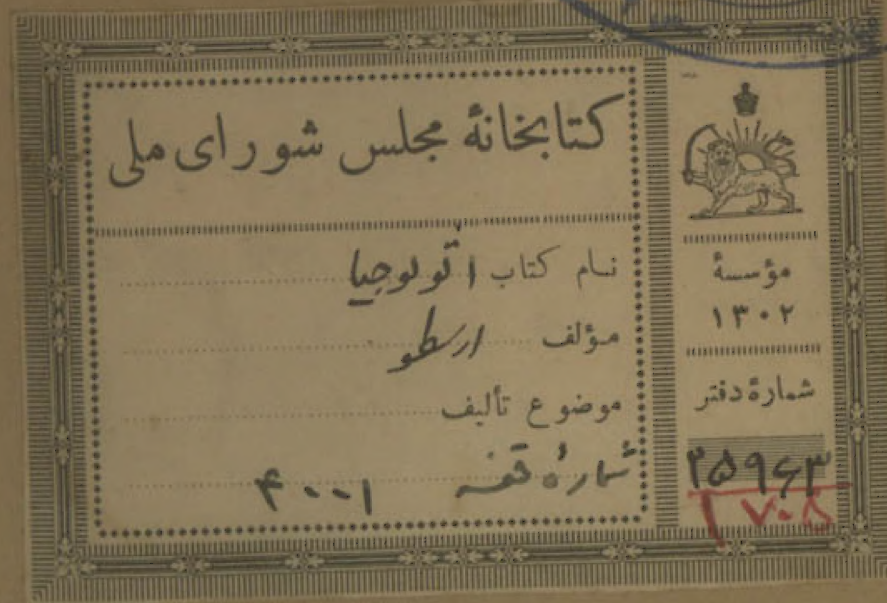 کتابخانهٔ مجلس شورای ملی
نام کتاب اثولوجیا
مؤلف ارسطو
موضوع تألیف
شمارهٔ قفسه ۴۰۰۱
مؤسسهٔ
۱۳۰۲
شمارهٔ دفتر
۲۵۹۶۳
۱۷۰۸